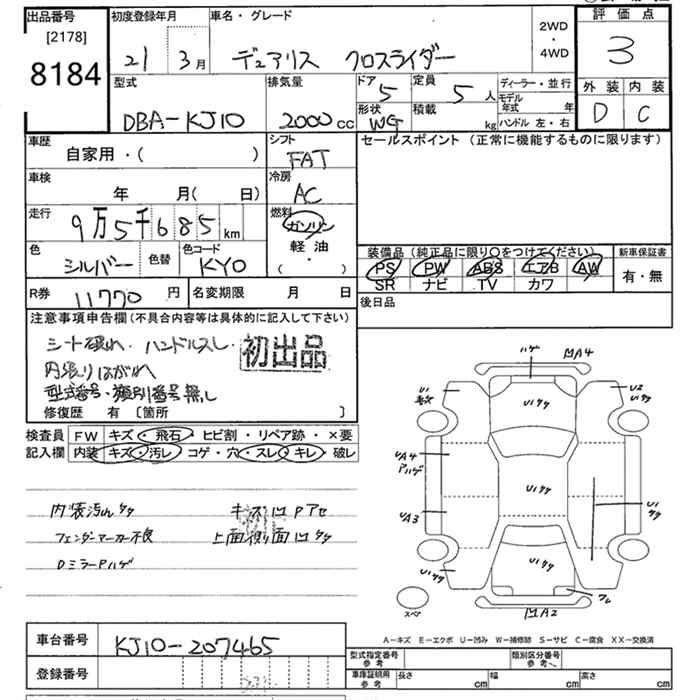 出品番号
[2178]
8184
初度登録年月
21 3月
車名・グレード
デュアリス クロスライダー
2WD
・
4WD
評価点
3
外装 内装
D C
型式
DBA-KJ10
排気量
2000cc
ドア
5
定員
5人
形状
WG
積載
kg
ディーラー・並行
モデル年式 年
ハンドル 左・右
車歴
自家用・( )
シフト
FAT
セールスポイント (正常に機能するものに限ります)
車検
年 月( 日)
冷房
AC
走行
9万5千685km
燃料
ガソリン
軽・油
( ・ )
色
シルバー
色替
色コード
KY0
装備品(純正品に限り○をつけてください)
PS PW ABS エアB AW
SR ナビ TV カワ
新車保証書
有・無
R券
11770円
名変期限 月 日
後日品
注意事項申告欄(不具合内容等は具体的に記入して下さい)
シート破れ・ハンドルスレ・
内張りはがれ
型式番号・類別番号無し
初出品
修復歴 有 〔箇所 〕
検査員
記入欄
FW キズ・飛石・ヒビ割・リペア跡・×要
内装 キズ・汚レ・コゲ・穴・スレ・キレ・破レ
内装汚れ
フェンダーマーカー不良
DミラーPハゲ
上面側面凹
ハゲ
MA4
U1
U2
U1
UA4
Pハゲ
U1
U1
UA3
U1
U1
スペア
MA2
A−キズ E−エクボ U−凹み W−補修跡 S−サビ C−腐食 XX−交換済
車台番号
KJ10-207465
登録番号
型式指定番号
参考
類別区分番号
参考
車庫証明用
参考
長さ cm
幅 cm
高さ cm